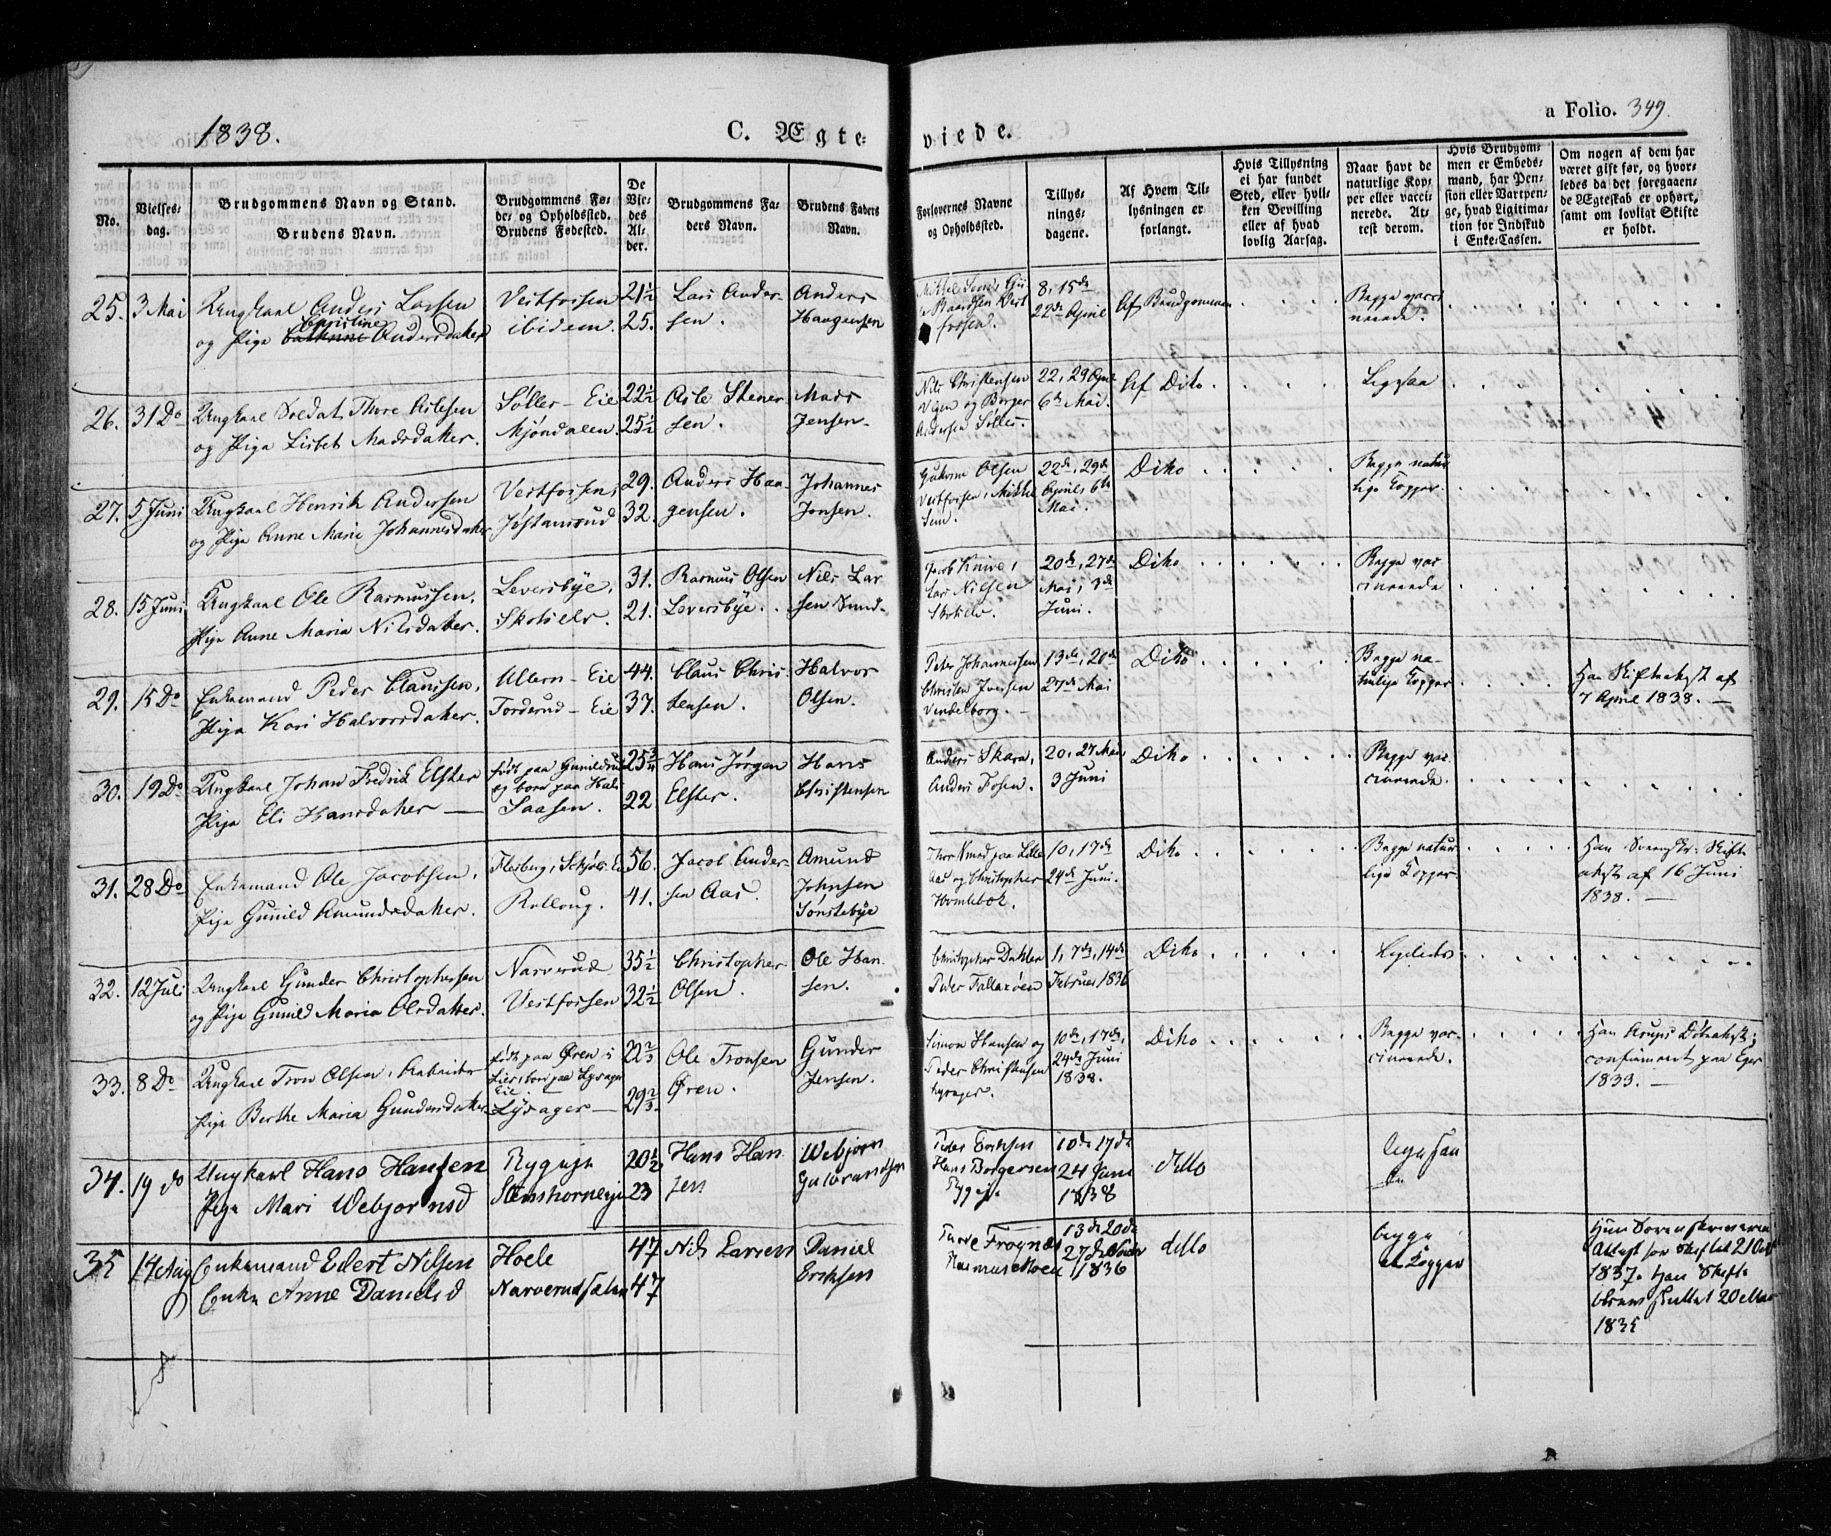 1838.
C. Ægte-
viede.
a Folio. 349.
No.
Vielses-
dag.
Brudgommens Navn og Stand.
Brudens Navn.
Brudgommens Fø-
de- og Opholdssted.
Brudens Fødested.
De
Vie-
des
Al-
der.
Brudgommens Fa-
ders Navn.
Brudens Faders
Navn.
Forlovernes Navne
og Opholdssted.
Tillys-
nings-
dagene.
Af Hvem Til-
lysningen er
forlangt.
Hvis Tillysning
ei har fundet
Sted, eller hvil-
ken Bevilling
eller af hvad
lovlig Aarsag.
Naar havt de
naturlige Kop-
per eller vacci-
nerede. At-
test derom.
Hvis Brudgom-
men er Embeds-
mand, har Pen-
sion eller Vartpen-
ge, hvad Ligitima-
tion for Indskud
i Enke-Cassen.
Om nogen af dem har
været gift før, og hvor-
ledes da det foregaaen-
de Ægteskab er ophørt,
samt om lovligt Skifte
er holdt.
25. 3 Mai
Ungkarl Anders Larsen
Christine
og Pige Andersdatter
Vestfossen
ibidem.
21½
25.
Lars Ander-
sen.
Anders
Haagensen
8, 15de
22de April
Af Brudgommen
Begge vacci-
nerede.
26. 31 Do
Ungkarl Soldat Thore Aslesen
og Pige Lisbet Madsdatter.
Søller-Eie
Mjøndalen.
22½
25½
Asle Stener-
sen.
Mads
Jensen.
Nils Christensen
Vigen og Borger
Andersen Solle.
22, 29 April
6te Mai.
Af Dito.
Ligesaa
27. 5 Juni
Ungkarl Henrik Andersen
og Pige Anne Marie Johannesdatter
Vestfossen,
29.
32.
Anders Haa-
gensen.
Johannes
Jonsen.
Guttorm Olsen
Vestfossen, Mikkel
22de, 29de
April, 6te
Mai.
Dito
Begge natur-
lige Kopper.
28. 15 Juni
Ungkarl Ole Rasmussen,
Pige Anne Maria Nilsdatter.
Leversbye,
Skotselv.
31.
21.
Rasmus Olsen
Leversbye.
Nils Lar-
sen Sund-
Jacob Knive,
Lars Nilsen
Skotselv.
20de, 27de
Mai, 3de
Juni.
Dito
Begge vac-
cinerede
29. 15 Do
Enkemand Peder Clausen,
Pige Kari Halvorsdatter.
Ullern-Eie
Torderud-Eie
44.
37.
Claus Chris-
tensen.
Halvor
Olsen.
Peter Johannessen
Christen Iversen
Vendelborg.
13de, 20de
27de Mai
Dito
Begge na-
turlige Kopper
Han Skifteattest af
7 April 1838.
30. 19 Do
Ungkarl Johan Fredrik Elster
Pige Eli Hansdatter
født paa Gunildrud
og boer paa Hals
Saasen.
25¾
22
Hans Jørgen
Elster.
Hans
Christensen
Anders Skara,
Anders Fosen.
20, 27 Mai
3 Juni
Dito
Begge vac-
cinerede.
31. 28 Do
Enkemand Ole Jacobsen,
Pige Gunild Amundsdatter.
Flesberg, Schjøls-Ei
Kolloug.
56.
41.
Jacob Ander-
sen Aas.
Amund
Johnsen
Sønstebye
Aas og Christopher
Homlebek.
10, 17de
24de Juni.
Dito
Begge natur-
lige Kopper.
Han Skifte
attest af 16 Juni
1838.
32. 12 Juli
Ungkarl Gunder Christophersen
og Pige Gunild Maria Olsdatter.
Narverud
Vestfossen
35½
32½
Christopher
Olsen.
Ole Han-
sen.
Christopher Dahler
Peder Fallaxøen
1, 7de, 14de
Februar 1836
Dito
Ligeledes
33. 8 Do
Ungkarl Tron Olsen, Arbeider
Pige Berthe Maria Gundersdatter
født paa Øren i
Lier, boer paa Lysager
Eie.
Lysager
22⅔
29⅔
Ole Tronsen
Øren.
Gunder
Jensen.
Simon Hansen og
Peder Christensen
Lysager.
10de, 17de,
24de Juni
1838.
Dito
Begge vac-
cinerede.
Han Døbeattest;
confirmeret paa Eger
1833.
34. 19 do
Ungkarl Hans Hansen
Pige Mari Webjørnsd
Rygeje
Stenshorneje
20½
23
Hans Han-
sen
Webjørn
Gulbrandsen
Peder Eriksen
Hans Borgersen
Rygeje
10de 17de
24 Juni
1838
ditto
ligesaa
35 14 Aug
Enkemand Edert Nilsen
Enke Anne Danielsd
Hoele
47
47
Nils Larsen
Daniel
Eriksen
Frognæs
Rasmus Moen
13de 20de
27de
1836
ditto
begge
Kopper
Attest for Skiftet 21 Oct
1837. Han Skifte
20 Mai
1835